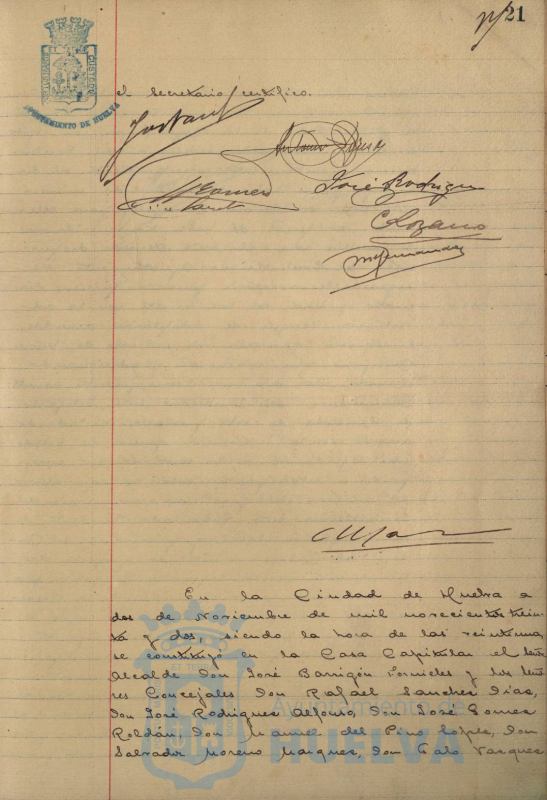 21
AYUNTAMIENTO DE HUELVA
el secretario certifico.
Antonio
José Rodríguez
C Lozano
En la Ciudad de Huelva a
dos de Noviembre de mil novecientos trein-
ta y dos, siendo la hora de las veintiuna,
se constituyó en la Casa Capitular el Señor
Alcalde Don José Barrigón Fornieles y los Seño-
res Concejales Don Rafael Sanchez Díaz,
Don José Rodriguez Alfonso, Don José Gomez
Roldán, Don Manuel del Pino López, Don
Salvador Moreno Marquez, Don Vazquez
Ayuntamiento de
HUELVA